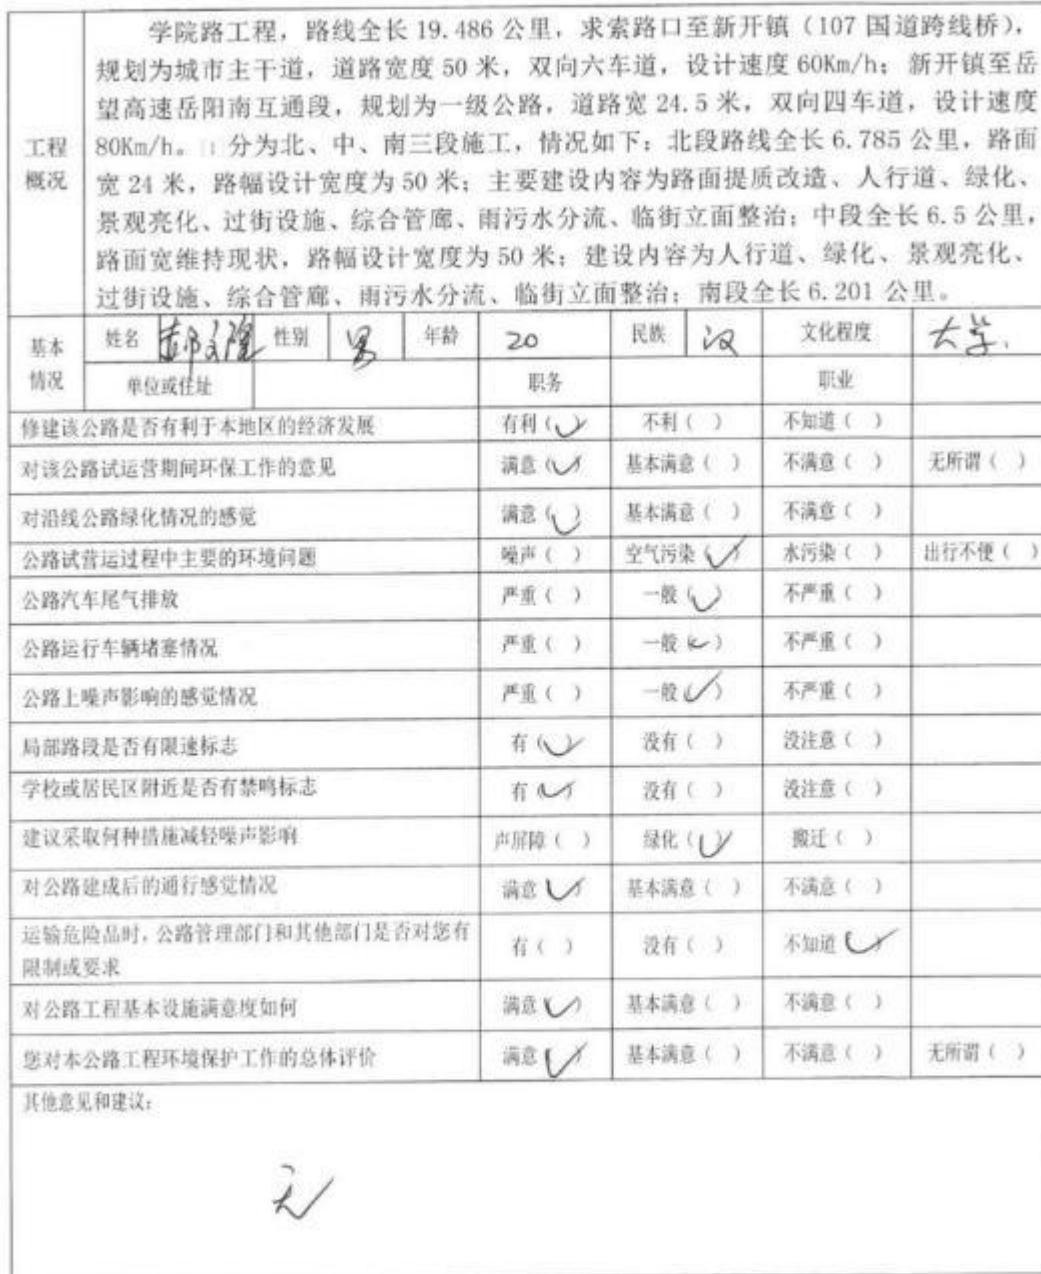 学院路工程，路线全长 19.486 公里，求索路口至新开镇（107 国道跨线桥），
规划为城市主干道，道路宽度 50 米，双向六车道，设计速度 60Km/h；新开镇至岳
望高速岳阳南互通段，规划为一级公路，道路宽 24.5 米，双向四车道，设计速度
80Km/h。 分为北、中、南三段施工，情况如下：北段路线全长 6.785 公里，路面
宽 24 米，路幅设计宽度为 50 米；主要建设内容为路面提质改造、人行道、绿化、
景观亮化、过街设施、综合管廊、雨污水分流、临街立面整治；中段全长 6.5 公里，
路面宽维持现状，路幅设计宽度为 50 米；建设内容为人行道、绿化、景观亮化、
过街设施、综合管廊、雨污水分流、临街立面整治；南段全长 6.201 公里。
工程
概况
基本
情况
姓名 性别 男 年龄 20 民族 汉 文化程度 大学.
单位或住址 职务 职业
修建该公路是否有利于本地区的经济发展 有利（✓） 不利（ ） 不知道（ ）
对该公路试运营期间环保工作的意见 满意（✓） 基本满意（ ） 不满意（ ） 无所谓（ ）
对沿线公路绿化情况的感觉 满意（✓） 基本满意（ ） 不满意（ ）
公路试营运过程中主要的环境问题 噪声（ ） 空气污染（✓） 水污染（ ） 出行不便（ ）
公路汽车尾气排放 严重（ ） 一般（✓） 不严重（ ）
公路运行车辆堵塞情况 严重（ ） 一般（✓） 不严重（ ）
公路上噪声影响的感觉情况 严重（ ） 一般（✓） 不严重（ ）
局部路段是否有限速标志 有（✓） 没有（ ） 没注意（ ）
学校或居民区附近是否有禁鸣标志 有（✓） 没有（ ） 没注意（ ）
建议采取何种措施减轻噪声影响 声屏障（ ） 绿化（✓） 搬迁（ ）
对公路建成后的通行感觉情况 满意（✓） 基本满意（ ） 不满意（ ）
运输危险品时，公路管理部门和其他部门是否对您有
限制或要求 有（ ） 没有（ ） 不知道（✓）
对公路工程基本设施满意度如何 满意（✓） 基本满意（ ） 不满意（ ）
您对本公路工程环境保护工作的总体评价 满意（✓） 基本满意（ ） 不满意（ ） 无所谓（ ）
其他意见和建议：
无